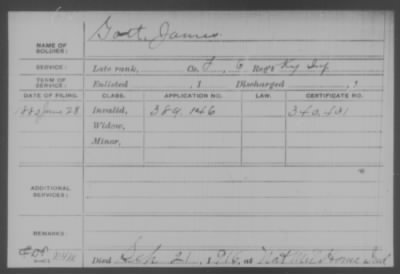 Gott, James
NAME OF SOLDIER:
SERVICE: Late rank, Co. F, 6 Reg't Ky Inf
TERM OF SERVICE: Enlisted , 1 Discharged , 1
DATE OF FILING. CLASS. APPLICATION NO. LAW. CERTIFICATE NO.
1880 June 28 Invalid, 389.146 340.401
Widow,
Minor,
ADDITIONAL SERVICES:
Died 21, 1916, at Nat Mil Home Ind